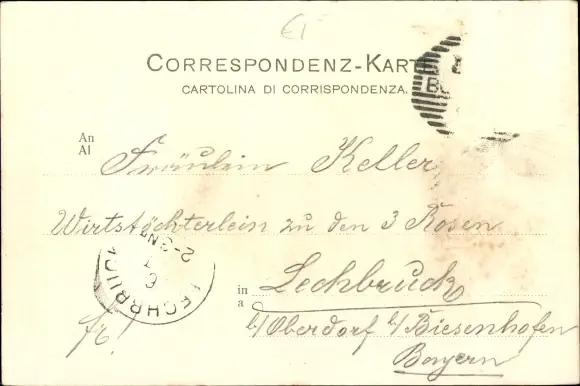 CORRESPONDENZ-KART
CARTOLINA DI CORRISPONDENZA.
An
Al
Fräulein Keller
Wirtstöchterlein zu den 3 Rosen
LECHBRUCK
in
a
Lechbruck
b/Oberdorf b/Biesenhofen
Bayern
fr!